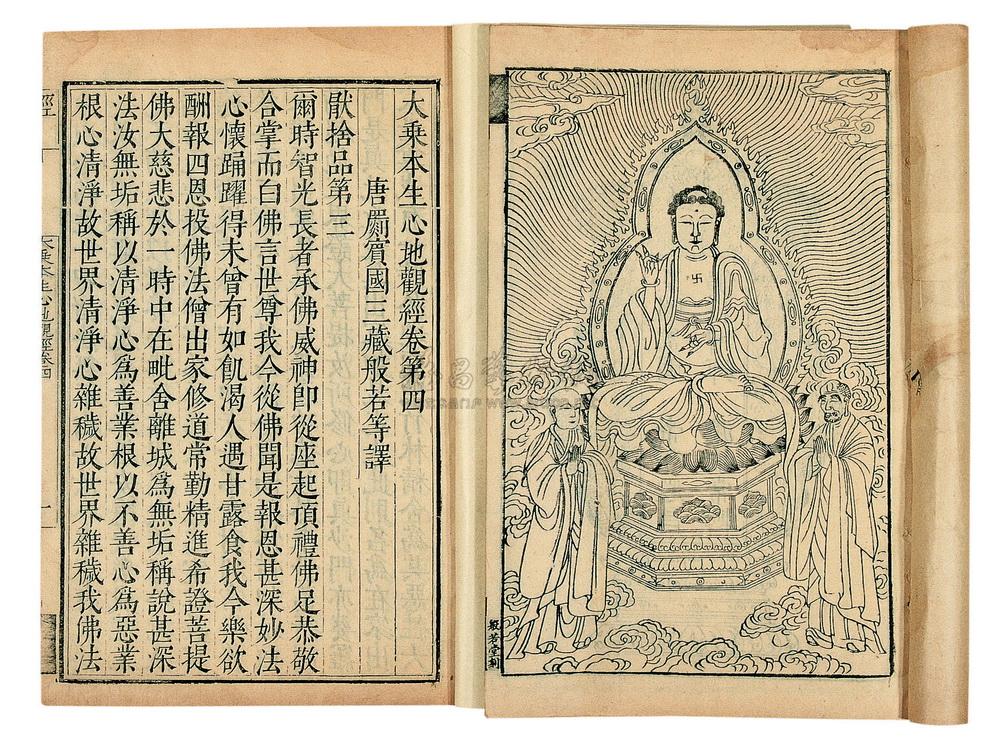 大乘本生心地觀經卷第四
唐罽賓國三藏般若等譯
厭捨品第三
爾時智光長者承佛威神即從座起頂禮佛足恭敬
合掌而白佛言世尊我今從佛聞是報恩甚深妙法
心懷踊躍得未曾有如飢渴人遇甘露食我今樂欲
酬報四恩投佛法僧出家修道常勤精進希證菩提
佛大慈悲於一時中在毗舍離城為無垢稱說甚深
法汝無垢稱以清淨心為善業根以不善心為惡業
根心清淨故世界清淨心雜穢故世界雜穢我佛法
經
大乘本生心地觀經卷四
一
般若堂刻